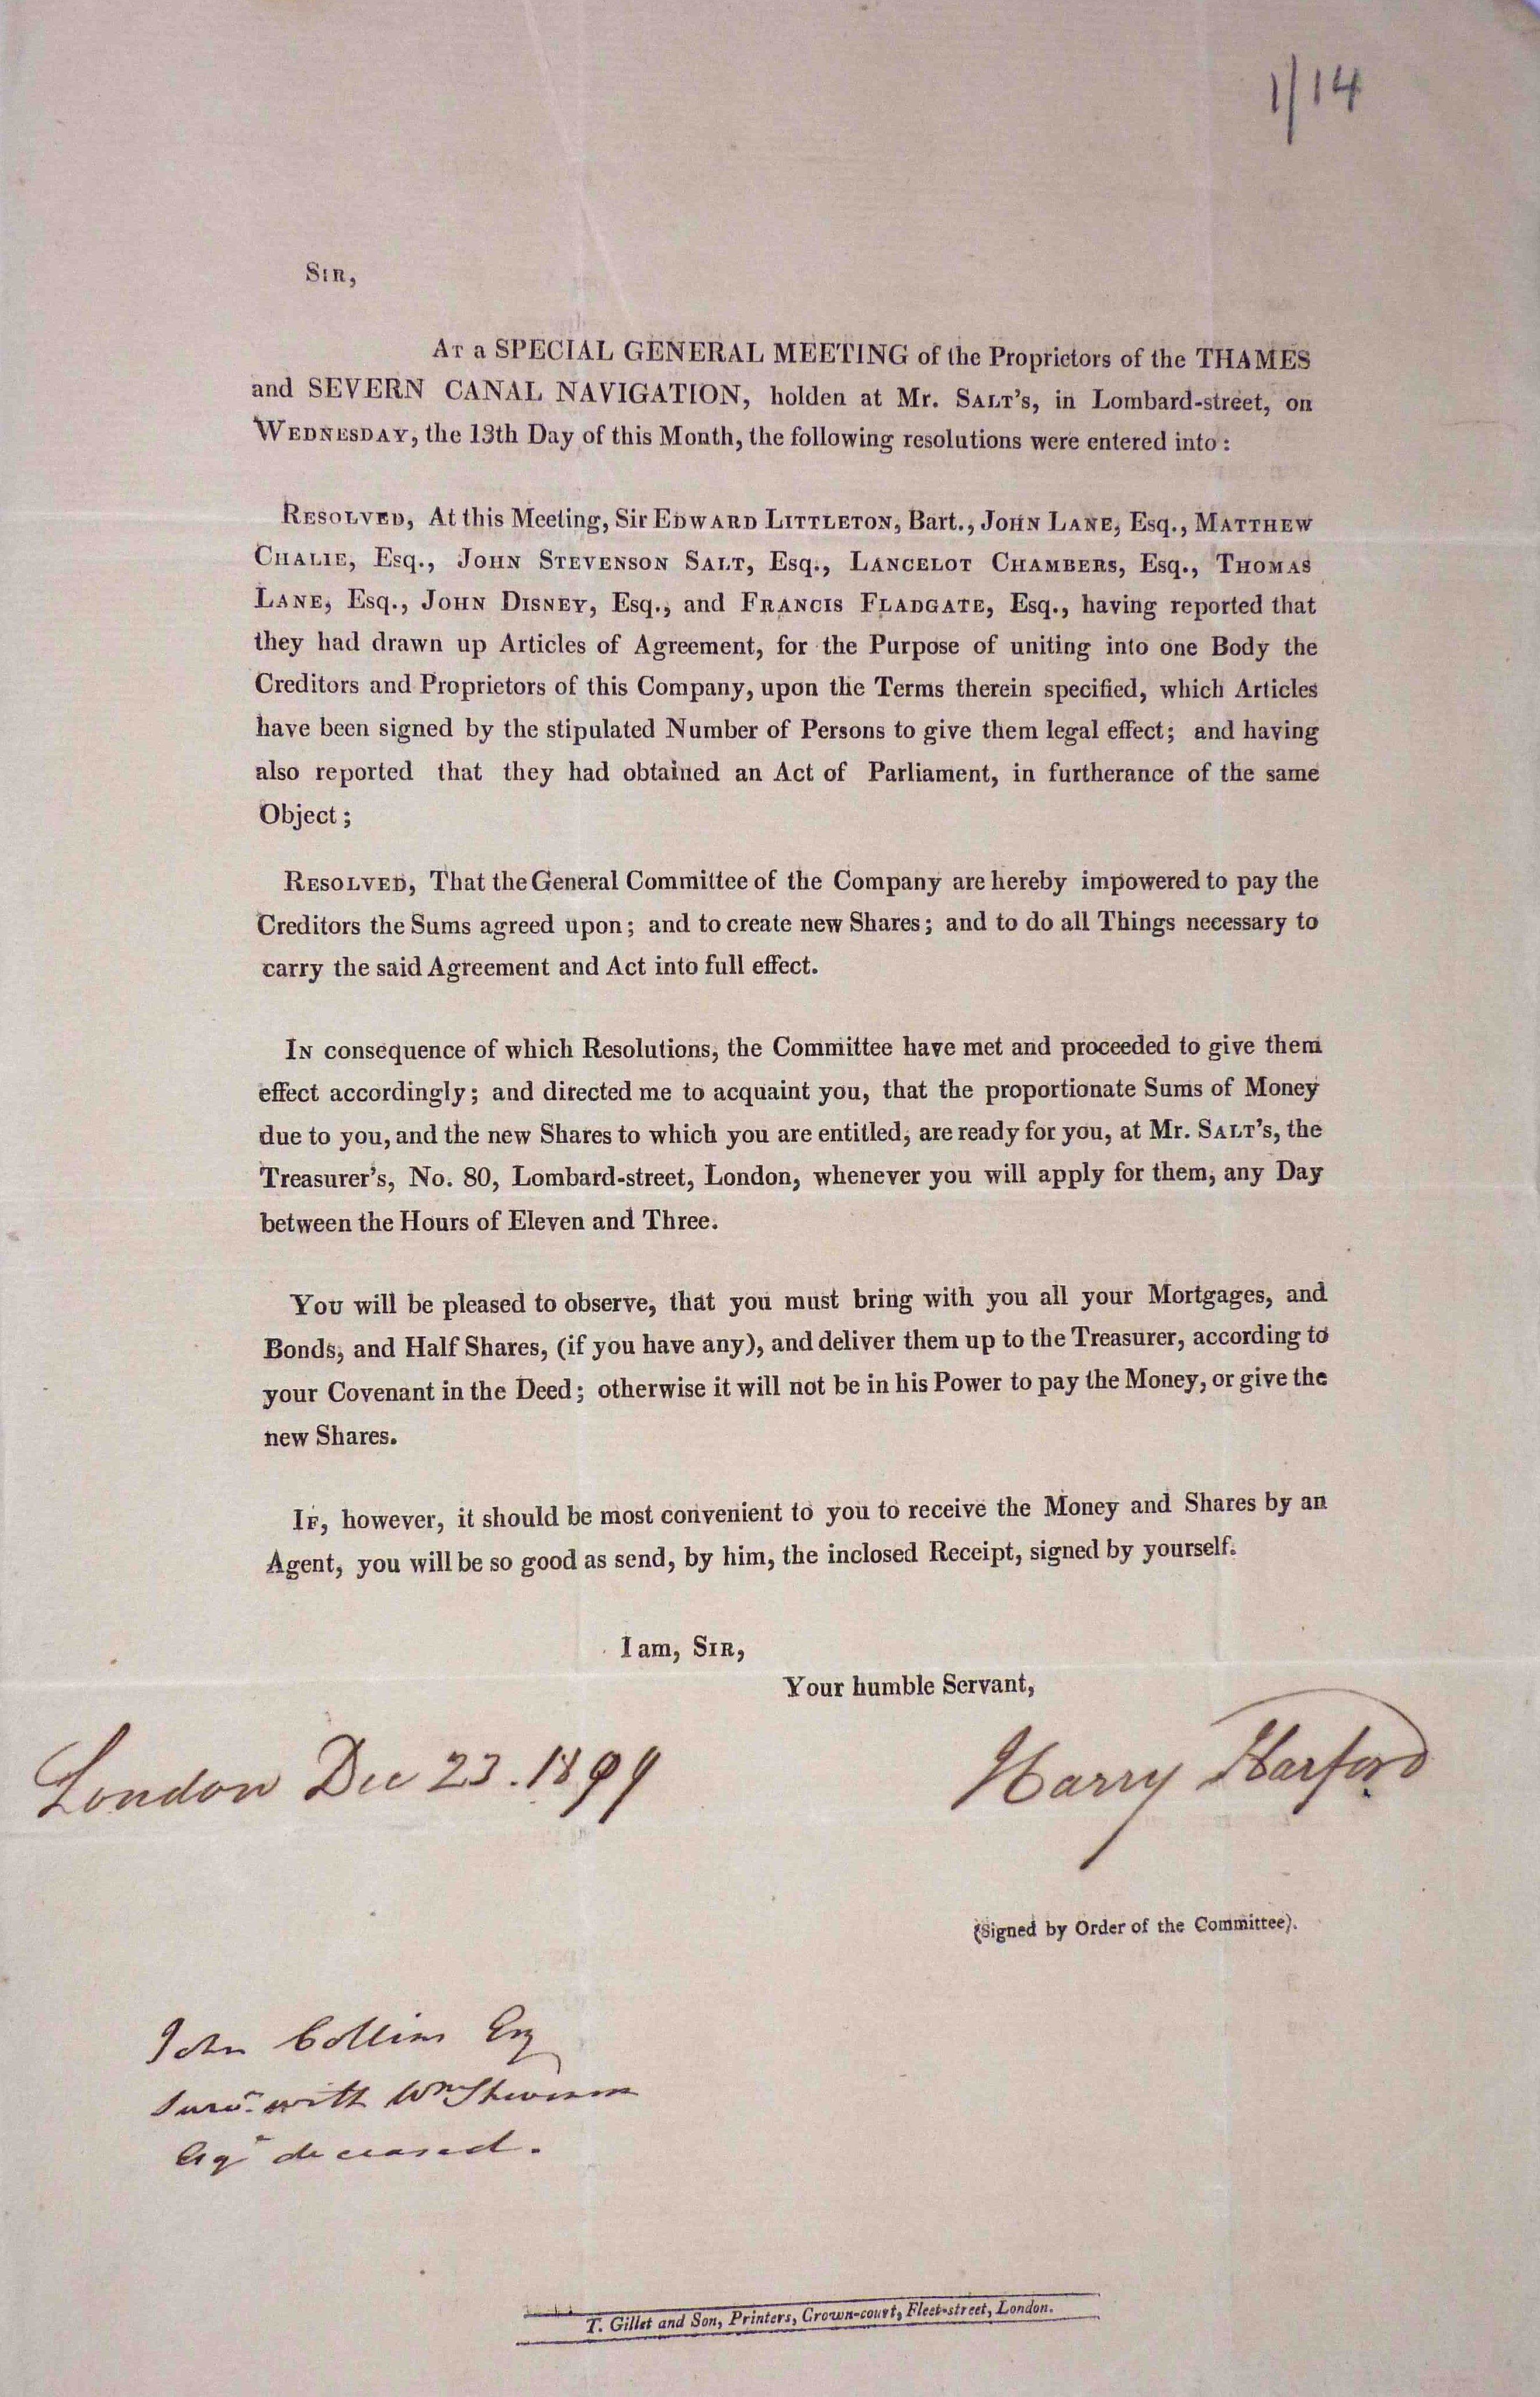 1/14
SIR,
AT a SPECIAL GENERAL MEETING of the Proprietors of the THAMES
and SEVERN CANAL NAVIGATION, holden at Mr. SALT's, in Lombard-street, on
WEDNESDAY, the 13th Day of this Month, the following resolutions were entered into:
RESOLVED, At this Meeting, Sir EDWARD LITTLETON, Bart., JOHN LANE, Esq., MATTHEW
CHALIE, Esq., JOHN STEVENSON SALT, Esq., LANCELOT CHAMBERS, Esq., THOMAS
LANE, Esq., JOHN DISNEY, Esq., and FRANCIS FLADGATE, Esq., having reported that
they had drawn up Articles of Agreement, for the Purpose of uniting into one Body the
Creditors and Proprietors of this Company, upon the Terms therein specified, which Articles
have been signed by the stipulated Number of Persons to give them legal effect; and having
also reported that they had obtained an Act of Parliament, in furtherance of the same
Object;
RESOLVED, That the General Committee of the Company are hereby impowered to pay the
Creditors the Sums agreed upon; and to create new Shares; and to do all Things necessary to
carry the said Agreement and Act into full effect.
IN consequence of which Resolutions, the Committee have met and proceeded to give them
effect accordingly; and directed me to acquaint you, that the proportionate Sums of Money
due to you, and the new Shares to which you are entitled, are ready for you, at Mr. SALT's, the
Treasurer's, No. 80, Lombard-street, London, whenever you will apply for them, any Day
between the Hours of Eleven and Three.
YOU will be pleased to observe, that you must bring with you all your Mortgages, and
Bonds, and Half Shares, (if you have any), and deliver them up to the Treasurer, according to
your Covenant in the Deed; otherwise it will not be in his Power to pay the Money, or give the
new Shares.
IF, however, it should be most convenient to you to receive the Money and Shares by an
Agent, you will be so good as send, by him, the inclosed Receipt, signed by yourself.
I am, SIR,
Your humble Servant,
London Dec 23. 1809
Harry Harford
(Signed by Order of the Committee).
John Collins Esq
with Wm
Esqr deceased.
T. Gillet and Son, Printers, Crown-court, Fleet-street, London.